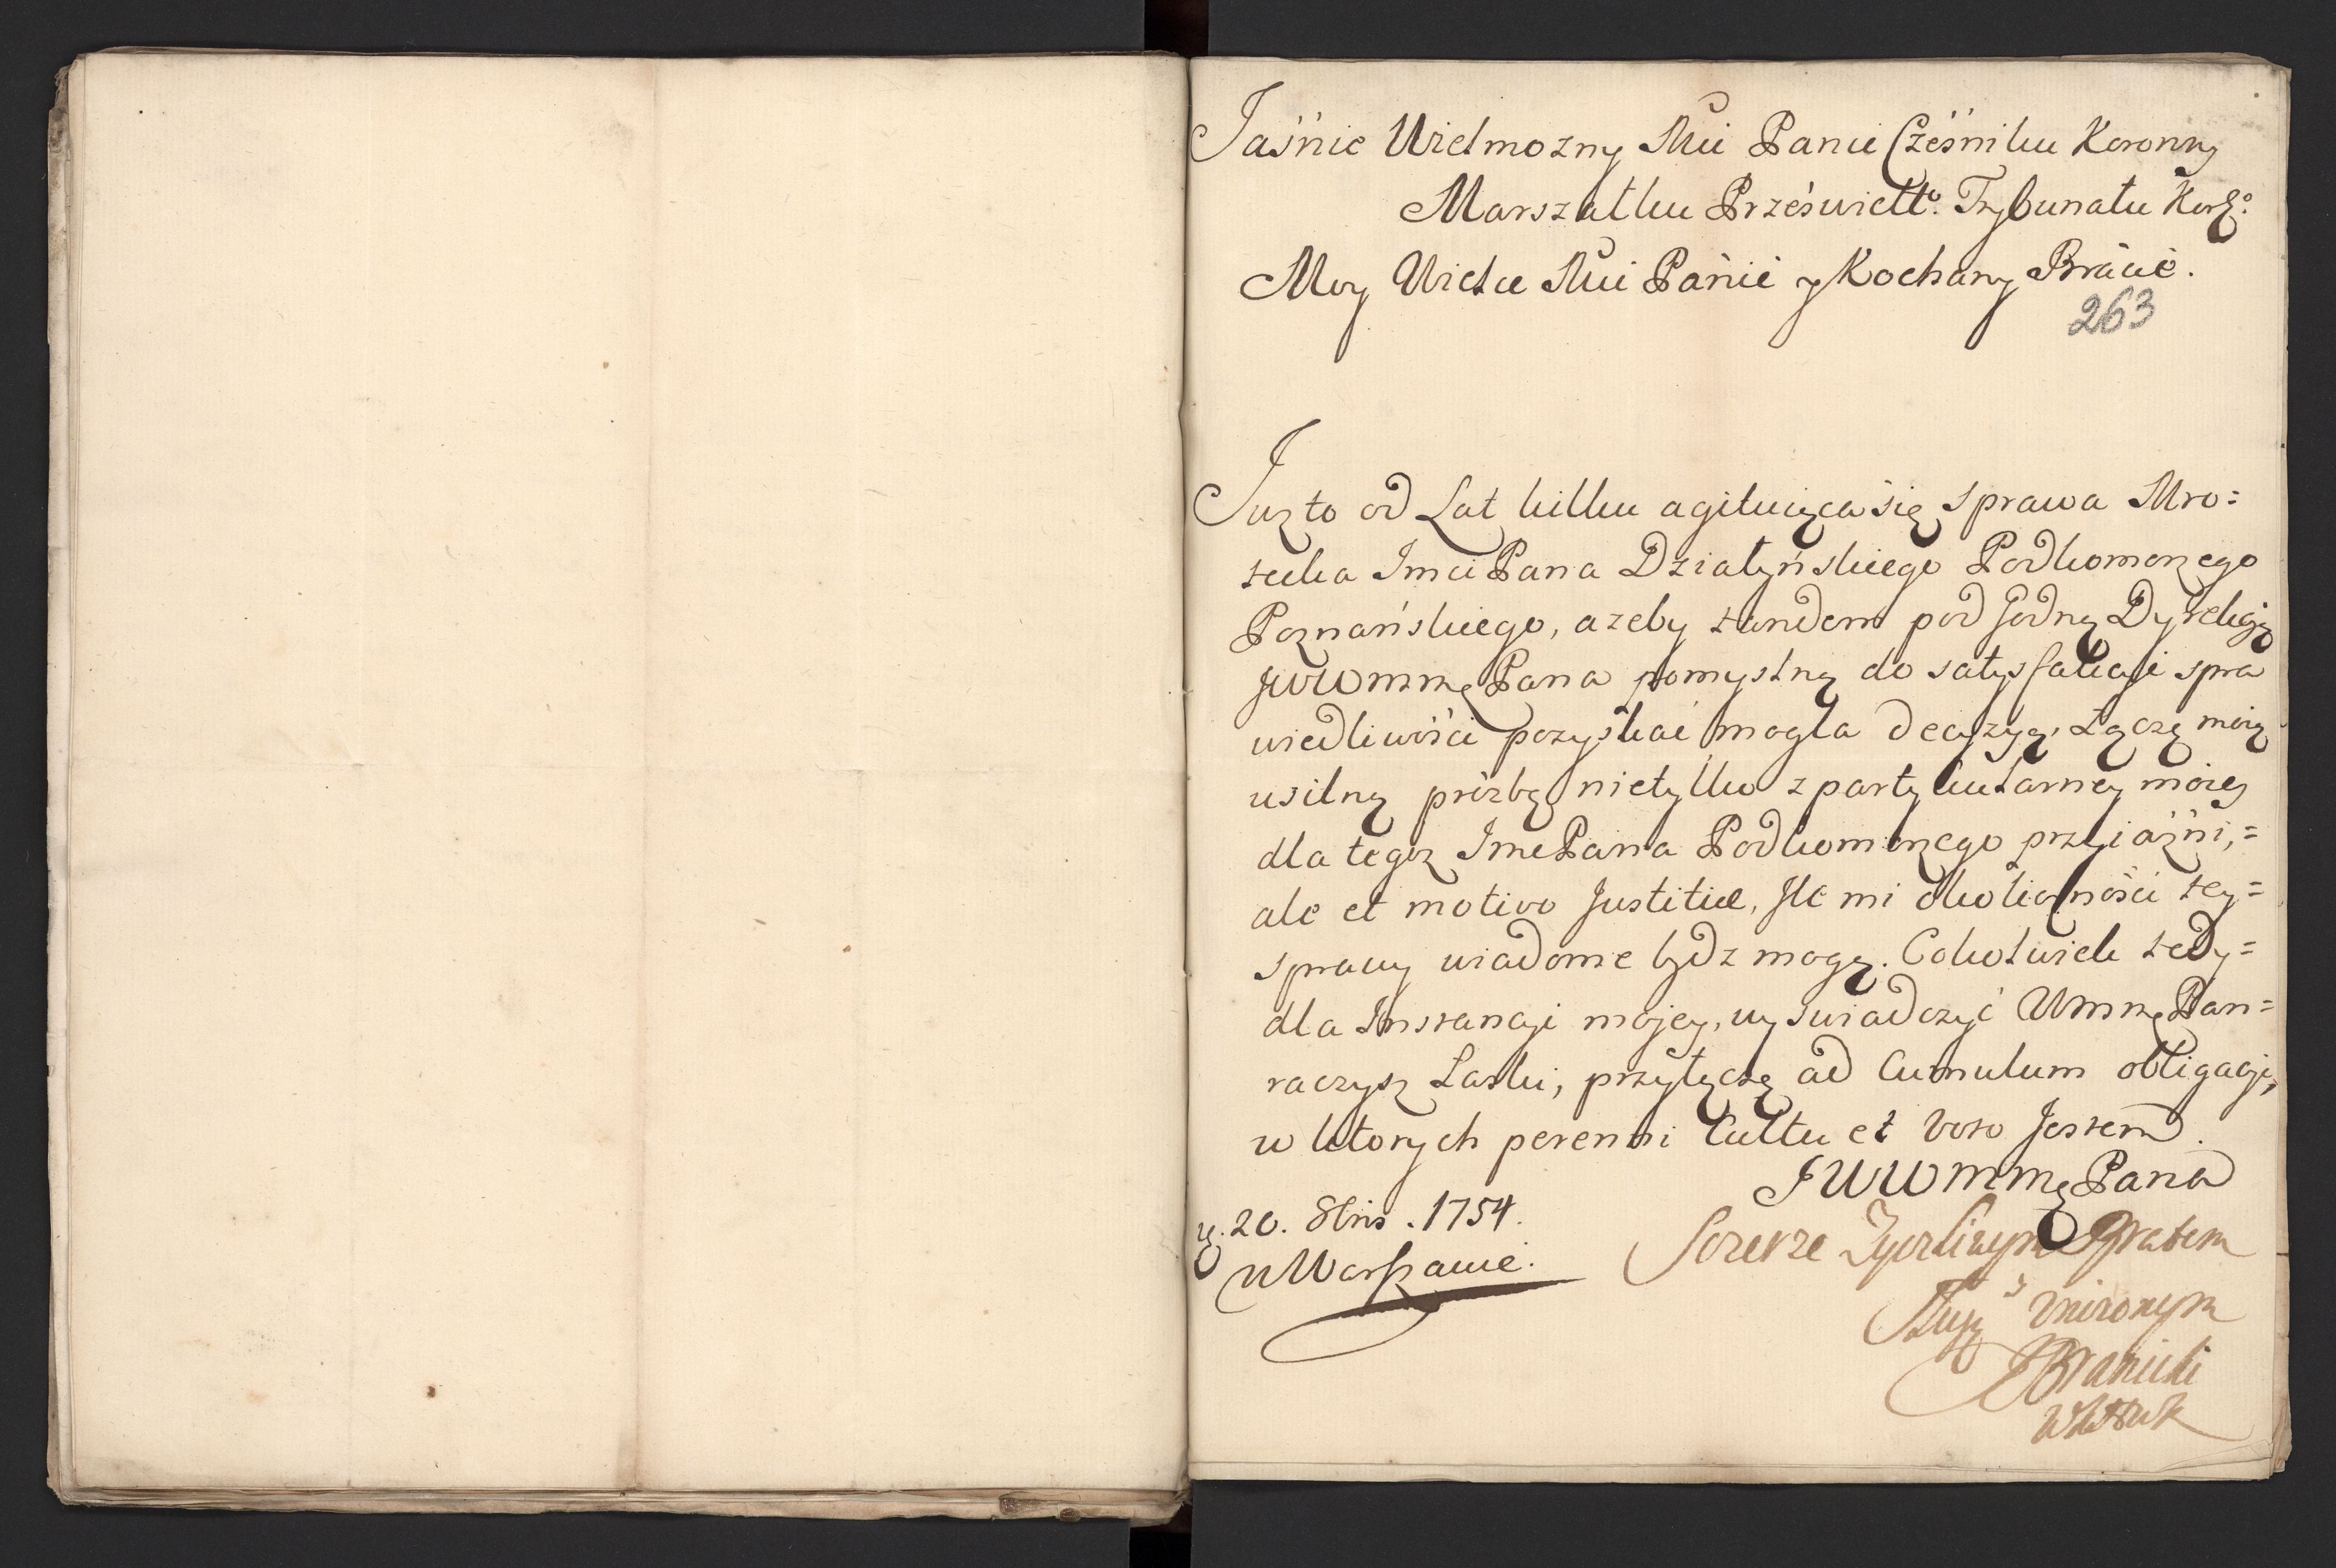 Jaśnie Wielmozny Mci Panie Cześniku Koronny
Marszałku Przeświettº. Trybunału Korgº:
Moy Wielce Mci Panie y Kochany Bracie.
263
Juz to od Lat kilku agituięca się sprawa Mro=
tecka Jmci Pana Działyńskiego Podkomorzego
Poznańskiego, azeby tandem pod godną Dyrekcją
JWWmmę Pana pomyslną do satysfakcyi spra
wiedliwości pozyskać mogła decyzyą, Łączę moią
usilną prózbę nietylko z partykularney moiey
dla tegoz Jmc Pana Podkomorzego przyiaźni,=
ale et motivo Justitiæ, Jle mi okolicznośći tey=
sprawy wiadome bydz mogą. Cokolwiek tedy=
dla Instancyi mojey, wyswiadczyć Wmmę Pan=
raczysz Łaski, przyłączę ad Cumulum obligacji,
w ktorych perenni Cultu et voto Jestem.
JWWmmę Pana
Szczerze Zyczliwym Bratem
y Sługą Vnizonym
JBranicki
d. 20. 8bris. 1754.
w Warszawie.